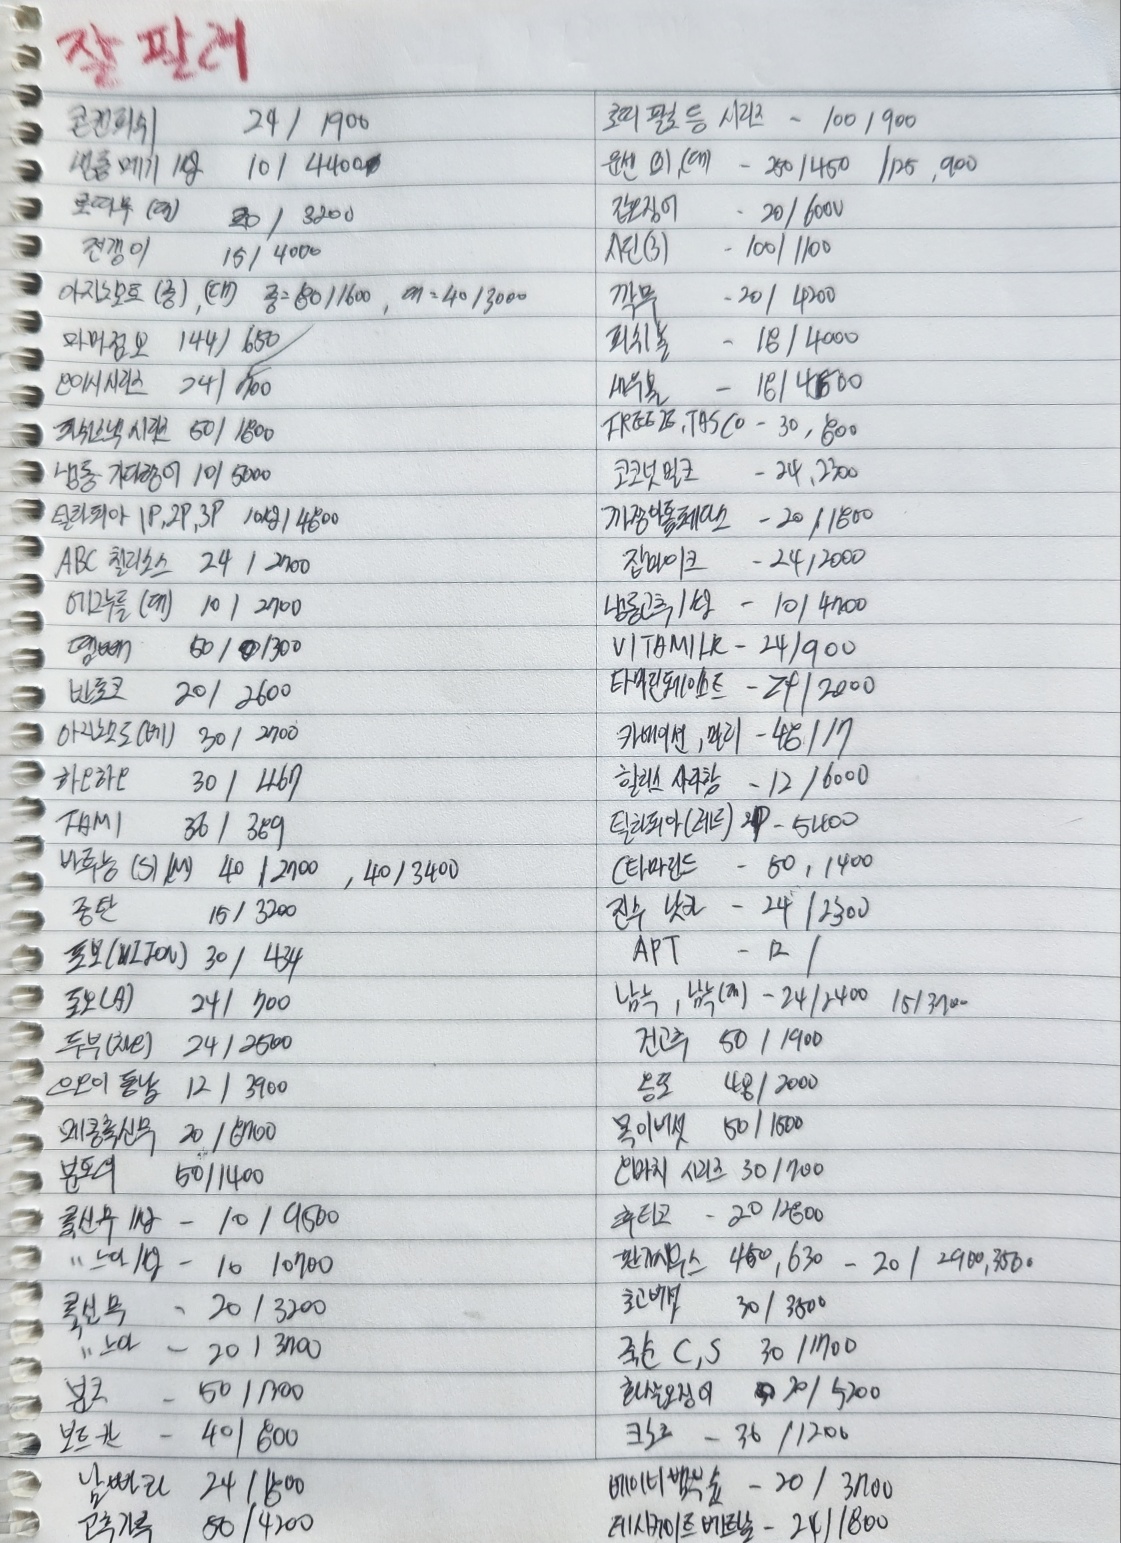 잘 팔려
콘킨피쉬 24 / 1900
냉동메기 1상 10 / 4400
로따무 (대) 20 / 3200
전갱이 15 / 4000
아지노모토 (중), (대) 중=80/1600, 대=40/3000
마마점보 144/ 650
오이시시리즈 24/ 700
피쉬스낵시리즈 50/ 1800
냉동 가다랑어 10/ 5000
틸라피아 1P, 2P, 3P 10상/4800
ABC 칠리소스 24 / 2700
에그누들 (대) 10 / 2700
옘뻬 50 / 1300
반호코 20/ 2600
아지노모도(베) 30/ 2700
하오하오 30 / 467
TAMI 36 / 389
바루농 (S) (M) 40 / 2700 , 40/3400
중탄 15/ 3200
포모(VIFON) 30/ 434
포모(A) 24/ 700
두부(차오) 24/2500
으오이 동남 12 / 3900
20 /
분또이 50/1400
쿡신무 1상 - 10 / 9500
〃 느아 1상 - 10 10700
쿡신무 - 20 / 3200
〃 느아 - 20 / 3700
분고 - 50 / 1300
보트칸 - 40/ 800
남빠라 24 /1500
고추가루 50 /4200
로띠 필로 등 시리즈 - 100 / 900
운센 미,(대) - 250/450 /125 ,900
갑오징어 - 20/6000
사틴(3) - 100/1100
깍무 - 20/ 4200
피쉬볼 - 18 / 4000
새우볼 - 18/
FREEZE, TASCO - 30, 800
코코넛밀크 - 24, 2300
까쟝아톨레다스 - 20 / 1800
잡마이크 - 24/2000
냉동고추 1상 - 10/ 4700
VITAMILK - 24/900
타마린페이스트 - 24/2000
카베이션, 마리 - 48 / 17
힐리스 사각참 - 12 / 6000
틸라피아(레드) 2P - 5400
C타마린드 - 50, 1400
진수 낫카 - 24 / 2300
APT - 12 /
남늑, 남늑(대) - 24/2400 15/3700
건고추 50 / 1900
응포 48/2000
목이버섯 50/1500
오마치 시리즈 30/700
후티고 - 20 /2800
환가시무스 450, 630 - 20/ 2900, 3500
초고버섯 30 / 3800
죽순 C, S 30 /1700
화낙오징어 20/ 5200
크노르 - 36 /1200
베이비뱀부슛 - 20 / 3700
데시케이트베르날 - 24/1800